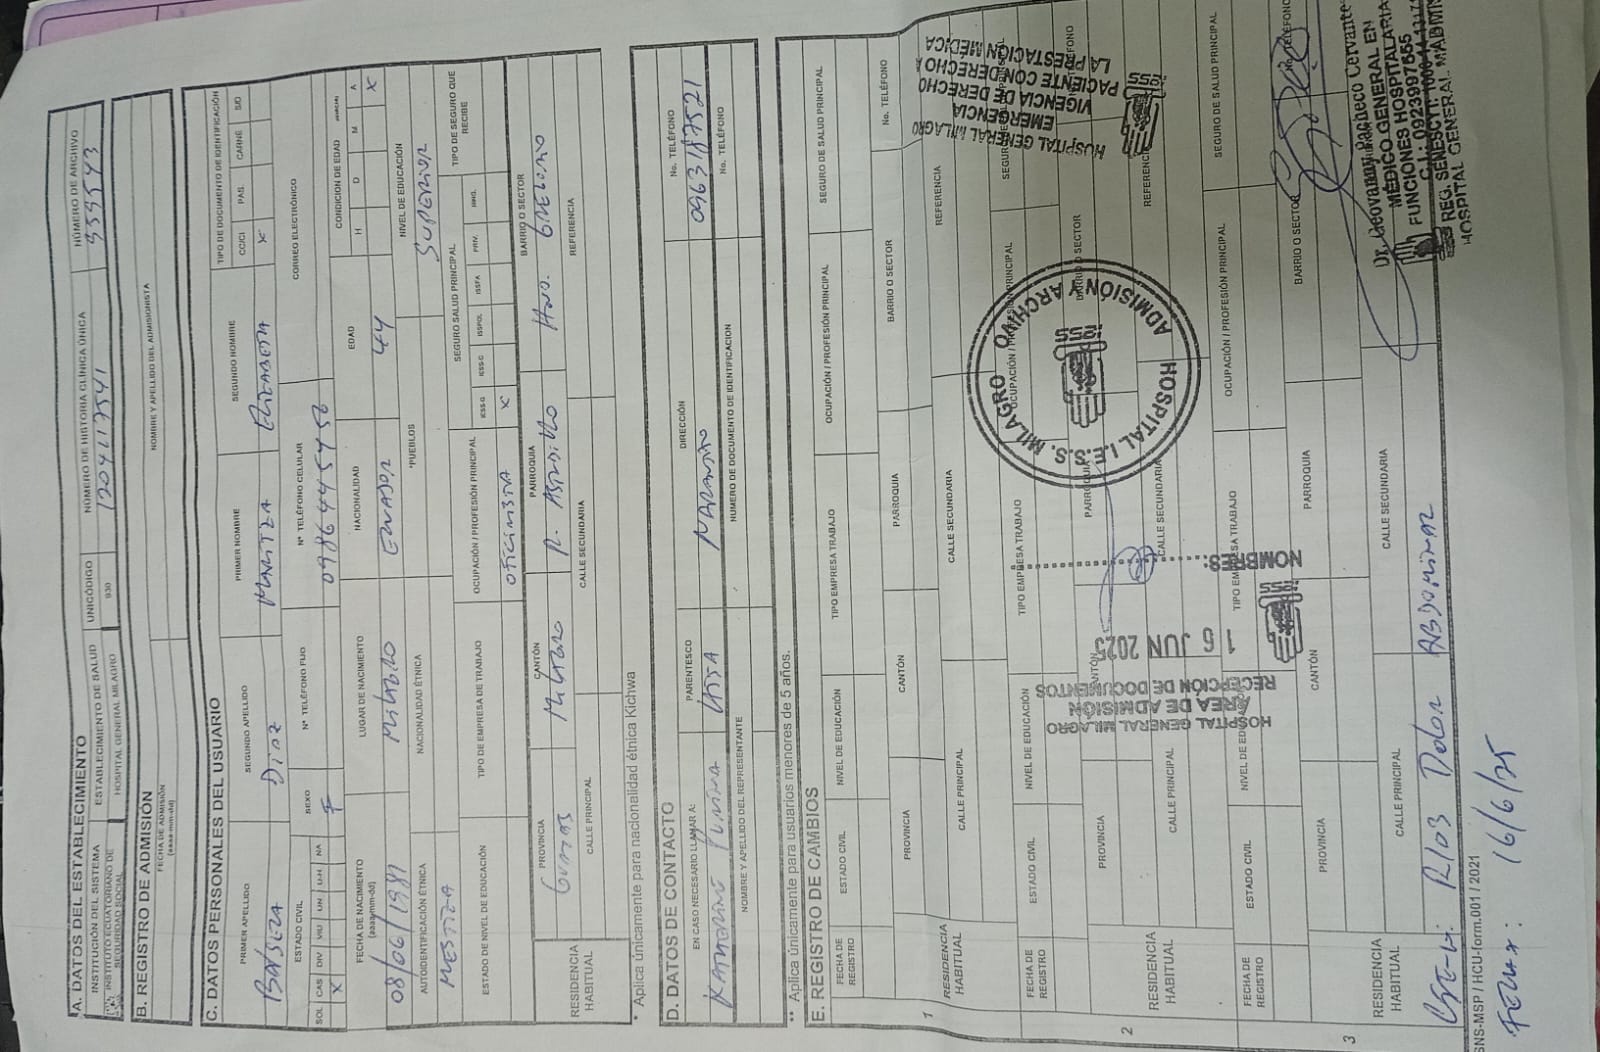 A. DATOS DEL ESTABLECIMIENTO
INSTITUCIÓN DEL SISTEMA ESTABLECIMIENTO DE SALUD UNICÓDIGO NÚMERO DE HISTORIA CLÍNICA ÚNICA NÚMERO DE ARCHIVO
INSTITUTO ECUATORIANO DE SEGURIDAD SOCIAL HOSPITAL GENERAL MILAGRO 930 1204117541 339543
B. REGISTRO DE ADMISIÓN
FECHA DE ADMISIÓN (aaaa-mm-dd) NOMBRE Y APELLIDO DEL ADMISIONISTA
C. DATOS PERSONALES DEL USUARIO
PRIMER APELLIDO SEGUNDO APELLIDO PRIMER NOMBRE SEGUNDO NOMBRE TIPO DE DOCUMENTO DE IDENTIFICACIÓN
CC/CI PAS. CARNÉ S/D
Díaz Maritza Elizabeth X
ESTADO CIVIL SEXO N° TELÉFONO FIJO N° TELÉFONO CELULAR CORREO ELECTRÓNICO
SOL CAS DIV VIU UN U-H NA
X F 0986445456
FECHA DE NACIMIENTO (aaaa/mm/dd) LUGAR DE NACIMIENTO NACIONALIDAD EDAD CONDICION DE EDAD
H D M A
08/06/1981 Milagro Ecuador 44 X
AUTOIDENTIFICACIÓN ÉTNICA NACIONALIDAD ÉTNICA *PUEBLOS NIVEL DE EDUCACIÓN
Mestiza Superior
ESTADO DE NIVEL DE EDUCACIÓN TIPO DE EMPRESA DE TRABAJO OCUPACIÓN / PROFESIÓN PRINCIPAL SEGURO SALUD PRINCIPAL TIPO DE SEGURO QUE RECIBE
IESS-G IESS-C ISSPOL ISSFA PRIV. NING.
Oficinista X
RESIDENCIA HABITUAL
PROVINCIA CANTÓN PARROQUIA BARRIO O SECTOR
Guayas Milagro R. Astudillo
CALLE PRINCIPAL CALLE SECUNDARIA REFERENCIA
* Aplica únicamente para nacionalidad étnica Kichwa
D. DATOS DE CONTACTO
EN CASO NECESARIO LLAMAR A: PARENTESCO DIRECCIÓN No. TELÉFONO
Katherine Naranjito 0963187521
NOMBRE Y APELLIDO DEL REPRESENTANTE NUMERO DE DOCUMENTO DE IDENTIFICACION No. TELÉFONO
** Aplica únicamente para usuarios menores de 5 años.
E. REGISTRO DE CAMBIOS
FECHA DE REGISTRO ESTADO CIVIL NIVEL DE EDUCACIÓN TIPO EMPRESA TRABAJO OCUPACIÓN / PROFESIÓN PRINCIPAL SEGURO DE SALUD PRINCIPAL
1
RESIDENCIA HABITUAL
PROVINCIA CANTÓN PARROQUIA BARRIO O SECTOR No. TELÉFONO
CALLE PRINCIPAL CALLE SECUNDARIA REFERENCIA
FECHA DE REGISTRO ESTADO CIVIL NIVEL DE EDUCACIÓN TIPO EMPRESA TRABAJO
2
RESIDENCIA HABITUAL
PROVINCIA CANTÓN PARROQUIA BARRIO O SECTOR
CALLE PRINCIPAL CALLE SECUNDARIA
FECHA DE REGISTRO ESTADO CIVIL TIPO EMPRESA TRABAJO OCUPACIÓN / PROFESIÓN PRINCIPAL SEGURO DE SALUD PRINCIPAL
3
RESIDENCIA HABITUAL
PROVINCIA CANTÓN PARROQUIA BARRIO O SECTOR
CALLE PRINCIPAL CALLE SECUNDARIA
HOSPITAL GENERAL MILAGRO
EMERGENCIA
VIGENCIA DE DERECHO
PACIENTE CON DERECHO A
LA PRESTACIÓN MÉDICA
IESS
HOSPITAL I.E.S.S. MILAGRO
ADMISIÓN Y ARCHIVO
IESS
HOSPITAL GENERAL MILAGRO
ÁREA DE ADMISIÓN
RECEPCIÓN DE DOCUMENTOS
16 JUN 2025
NOMBRES:
IESS
Dr. Geovanny Pacheco Cervante
MÉDICO GENERAL EN
FUNCIONES HOSPITALARIA
C.I.: 0923997555
HOSPITAL GENERAL
Dolor Abdominal
SNS-MSP / HCU-form.001 / 2021
Fecha: 16/6/25